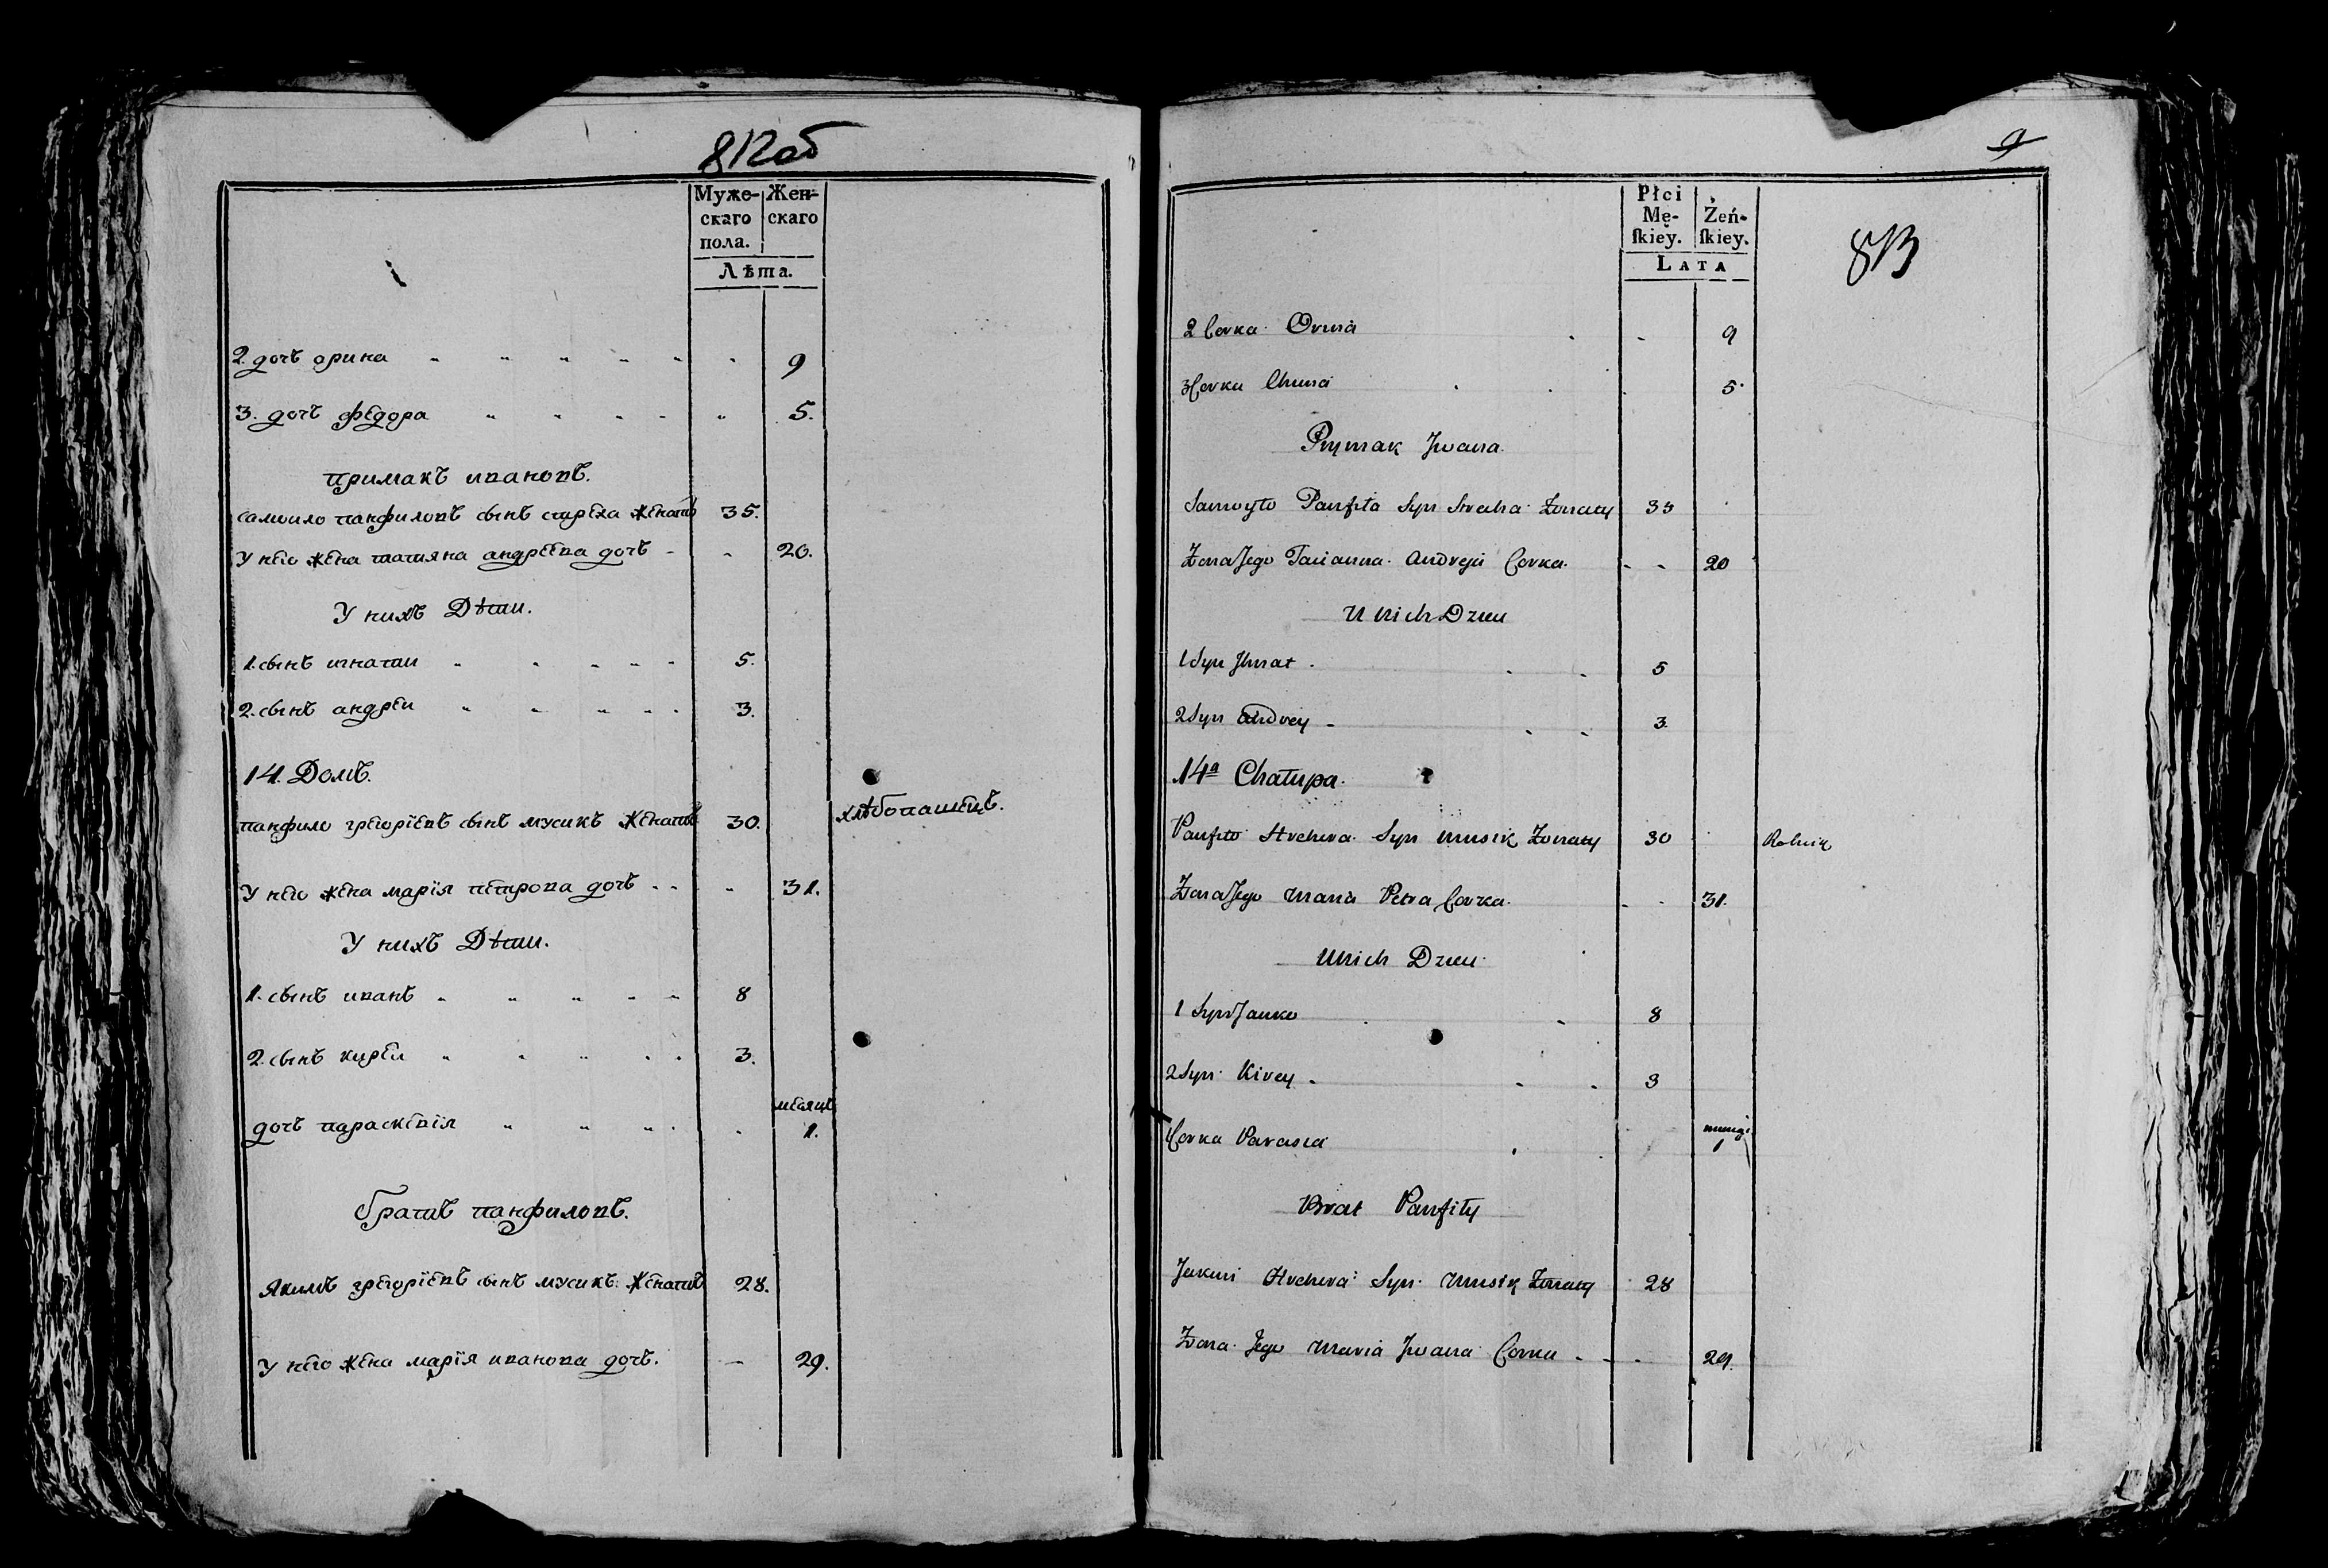 812об
Муже- Жен-
скаго скаго
пола.
Лѣта.
2. дочь орина 9
3. дочь федора 5.
примакъ ивановъ.
самоило панфиловъ сынъ стреха женатъ 35.
У него жена татияна андреева дочь - 20.
У нихъ Дѣти.
1. сынъ игнати 5.
2. сынъ андреи 3.
14. Домъ.
панфило грегорiевъ сынъ мусикъ женатъ 30. хлѣбопашецъ.
У него жена марiя петрова дочь - - 31.
У нихъ Дѣти.
1. сынъ иванъ 8
2. сынъ киреи 3.
месяцъ
дочь параскевiя 1.
братъ панфиловъ.
якимъ грегорiевъ сынъ мусикъ. женатъ 28.
У него жена марiя иванова дочь. - 29.
9
Płci
Mę- Żeń-
ſkiey. ſkiey.
LATA
813
2 Corka Oryna 9
3 Corka 5
Prymak Jwana
Samoyło Panfiła Syn Strecha Żonaty 35
Żona Jego Tacianna Andreja Corka 20
U Nich Dzieci
1 Syn Jhnat 5
2 Syn Andrey 3
14a Chałupa.
Panfiło Hrehora Syn Musik Żonaty 30 Rolnik
Żona Jego Maria Petra Corka 31.
U Nich Dzieci
1 Syn Jwanko 8
2 Syn Kirey 3
Corka Parasia 1
Brat Panfiły
Jakim Hrehora Syn Musik Żonaty 28
Żona Jego Maria Jwana Corka - - - 29.